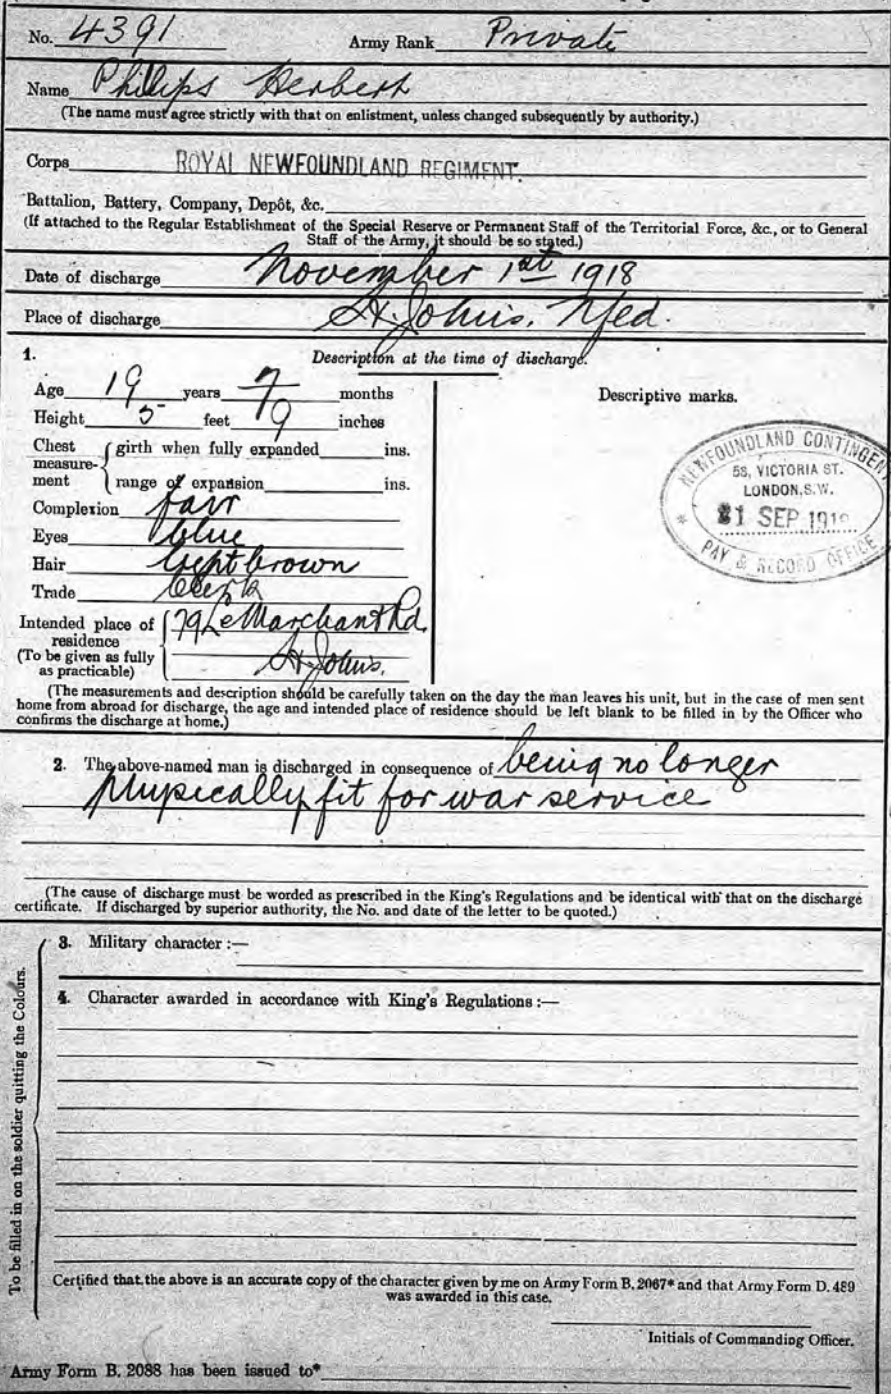 No. 4391 Army Rank Private
Name Phillips Herbert
(The name must agree strictly with that on enlistment, unless changed subsequently by authority.)
Corps ROYAL NEWFOUNDLAND REGIMENT.
Battalion, Battery, Company, Depôt, &c.
(If attached to the Regular Establishment of the Special Reserve or Permanent Staff of the Territorial Force, &c., or to General
Staff of the Army, it should be so stated.)
Date of discharge November 1st 1918
Place of discharge St. John's. Nfld.
1. Description at the time of discharge.
Age 19 years 7 months
Height 5 feet 9 inches
Chest measurement girth when fully expanded ins.
range of expansion ins.
Complexion fair
Eyes blue
Hair light brown
Trade Clerk
Intended place of residence 79 LeMarchant Rd.
(To be given as fully as practicable) St. John's.
Descriptive marks.
NEWFOUNDLAND CONTINGENT
58, VICTORIA ST.
LONDON, S.W.
SEP
PAY & RECORD OFFICE
(The measurements and description should be carefully taken on the day the man leaves his unit, but in the case of men sent
home from abroad for discharge, the age and intended place of residence should be left blank to be filled in by the Officer who
confirms the discharge at home.)
2. The above-named man is discharged in consequence of being no longer
physically fit for war service
(The cause of discharge must be worded as prescribed in the King's Regulations and be identical with that on the discharge
certificate. If discharged by superior authority, the No. and date of the letter to be quoted.)
To be filled in on the soldier quitting the Colours.
3. Military character :—
4. Character awarded in accordance with King's Regulations :—
Certified that the above is an accurate copy of the character given by me on Army Form B. 2067* and that Army Form D. 489
was awarded in this case.
Initials of Commanding Officer.
Army Form B. 2088 has been issued to*